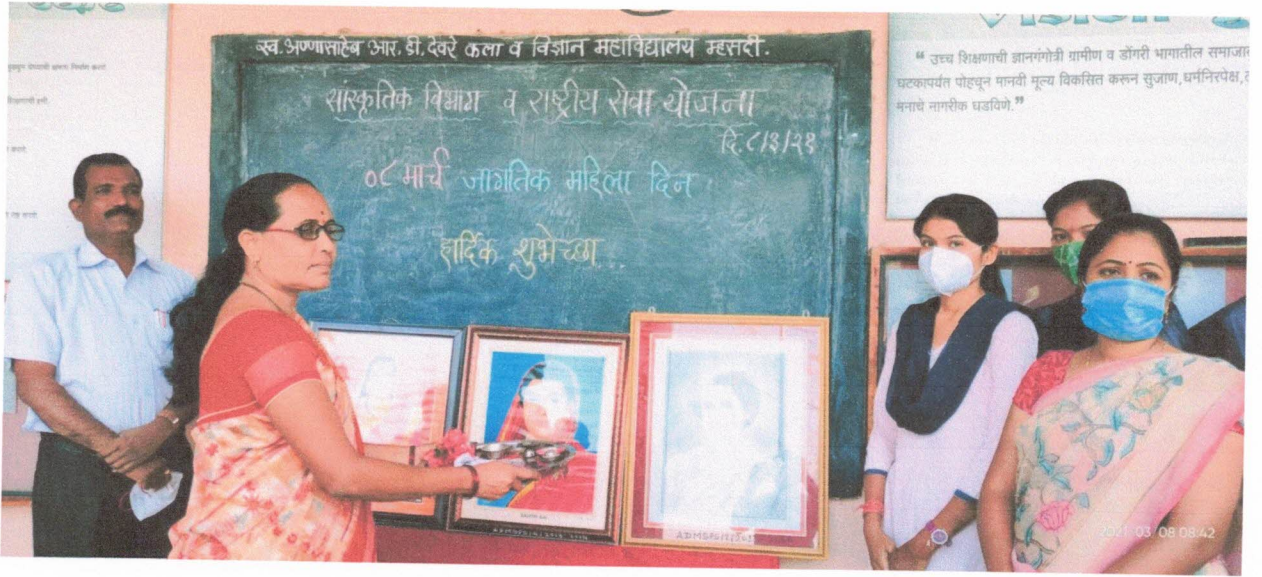 स्व. अण्णासाहेब आर. डी. देवरे कला व विज्ञान महाविद्यालय म्हसदी.
सांस्कृतिक विभाग व राष्ट्रीय सेवा योजना
दि. ८/३/२१
०८ मार्च जागतिक महिला दिन
हार्दिक शुभेच्छा...
“ उच्च शिक्षणाची ज्ञानगंगोत्री ग्रामीण व डोंगरी भागातील
घटकापर्यंत पोहचून मानवी मूल्य विकसित करून सुजाण,धर्मनिरपेक्ष,
मनाचे नागरीक घडविणे.”
2021/03/08 08:42